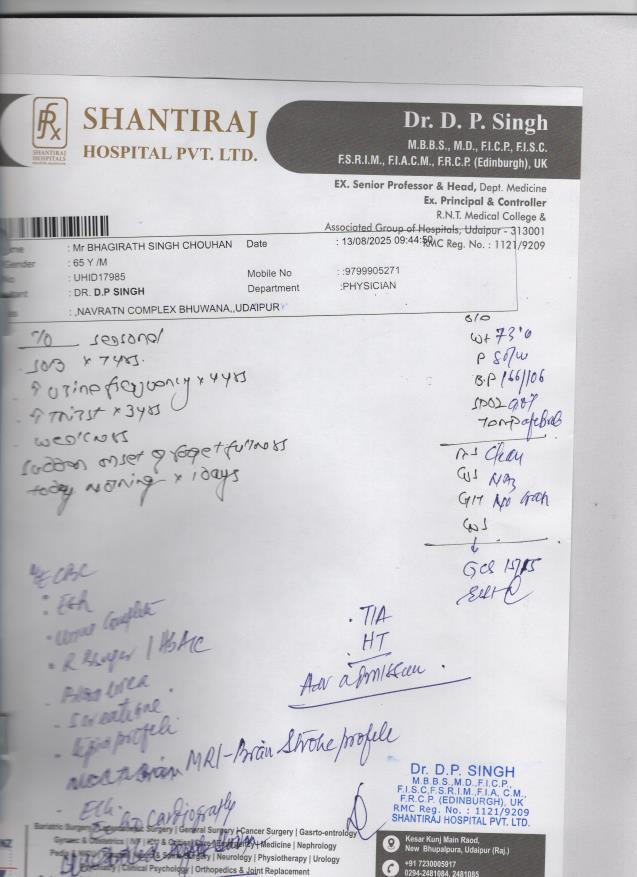 SHANTIRAJ
HOSPITAL PVT. LTD.
SHANTIRAJ
HOSPITALS
Dr. D. P. Singh
M.B.B.S., M.D., F.I.C.P., F.I.S.C.
F.S.R.I.M., F.I.A.C.M., F.R.C.P. (Edinburgh), UK
EX. Senior Professor & Head, Dept. Medicine
Ex. Principal & Controller
R.N.T. Medical College &
Associated Group of Hospitals, Udaipur - 313001
RMC Reg. No. : 1121/9209
: Mr BHAGIRATH SINGH CHOUHAN Date : 13/08/2025 09:44:50
Gender : 65 Y /M
: UHID17985 Mobile No : :9799905271
: DR. D.P SINGH Department :PHYSICIAN
: ,NAVRATN COMPLEX BHUWANA,,UDAIPUR
seasonal
SOB x 7yrs.
↑ urine frequency x 4yrs
↑ Thirst x 3yrs
weakness
sudden onset of forgetfulness
today morning x 1days
O/E
Wt 73
P
BP 166/106
SPO2 98%
Temp afebrile
RS Clear
CVS
CNS
↓
GCS 15/15
CBC
ESR
Urine Complete
R Sugar / HbA1c
Blood Urea
S creatinine
Lipid profile
Brain MRI - Brain Stroke profile
Echo cardiography
TIA
HT
Adv admission.
Dr. D.P. SINGH
M.B.B.S., M.D.,F.I.C.P.,
F.I.S.C,F.S.R.I.M.,F.I.A, C.M.,
F.R.C.P. (EDINBURGH), UK
RMC Reg. No. : 1121/9209
SHANTIRAJ HOSPITAL PVT. LTD.
Surgery | General Surgery | Cancer Surgery | Gasrto-entrology
Medicine | Nephrology
Surgery | Neurology | Physiotherapy | Urology
Clinical Psychology | Orthopedics & Joint Replacement
Kesar Kunj Main Raod,
New Bhupalpura, Udaipur (Raj.)
+91 7230005917
0294-2481084, 2481085